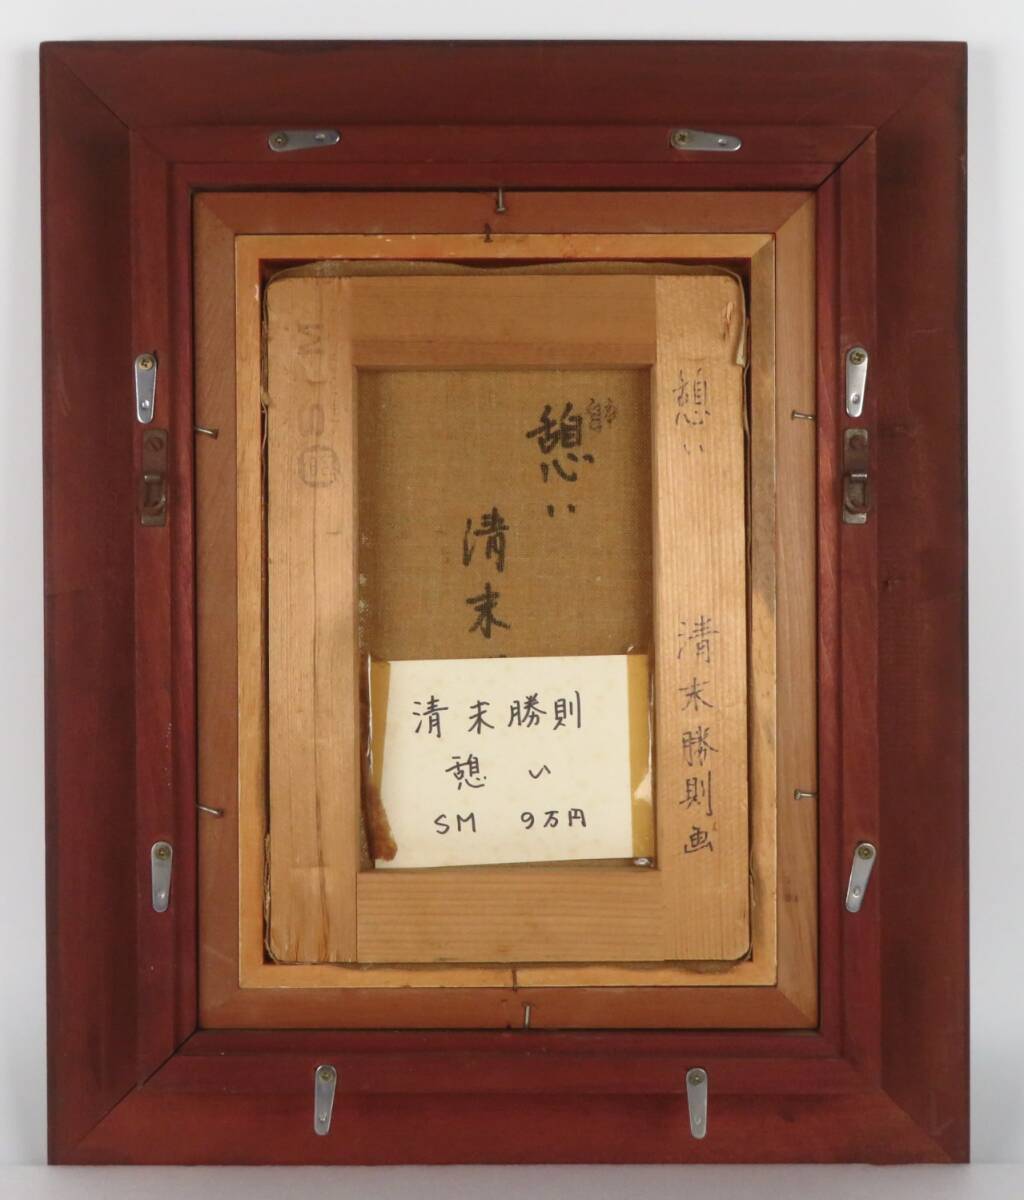 憩い
清末勝則画
憩い
清末
清末勝則
憩い
SM 9万円